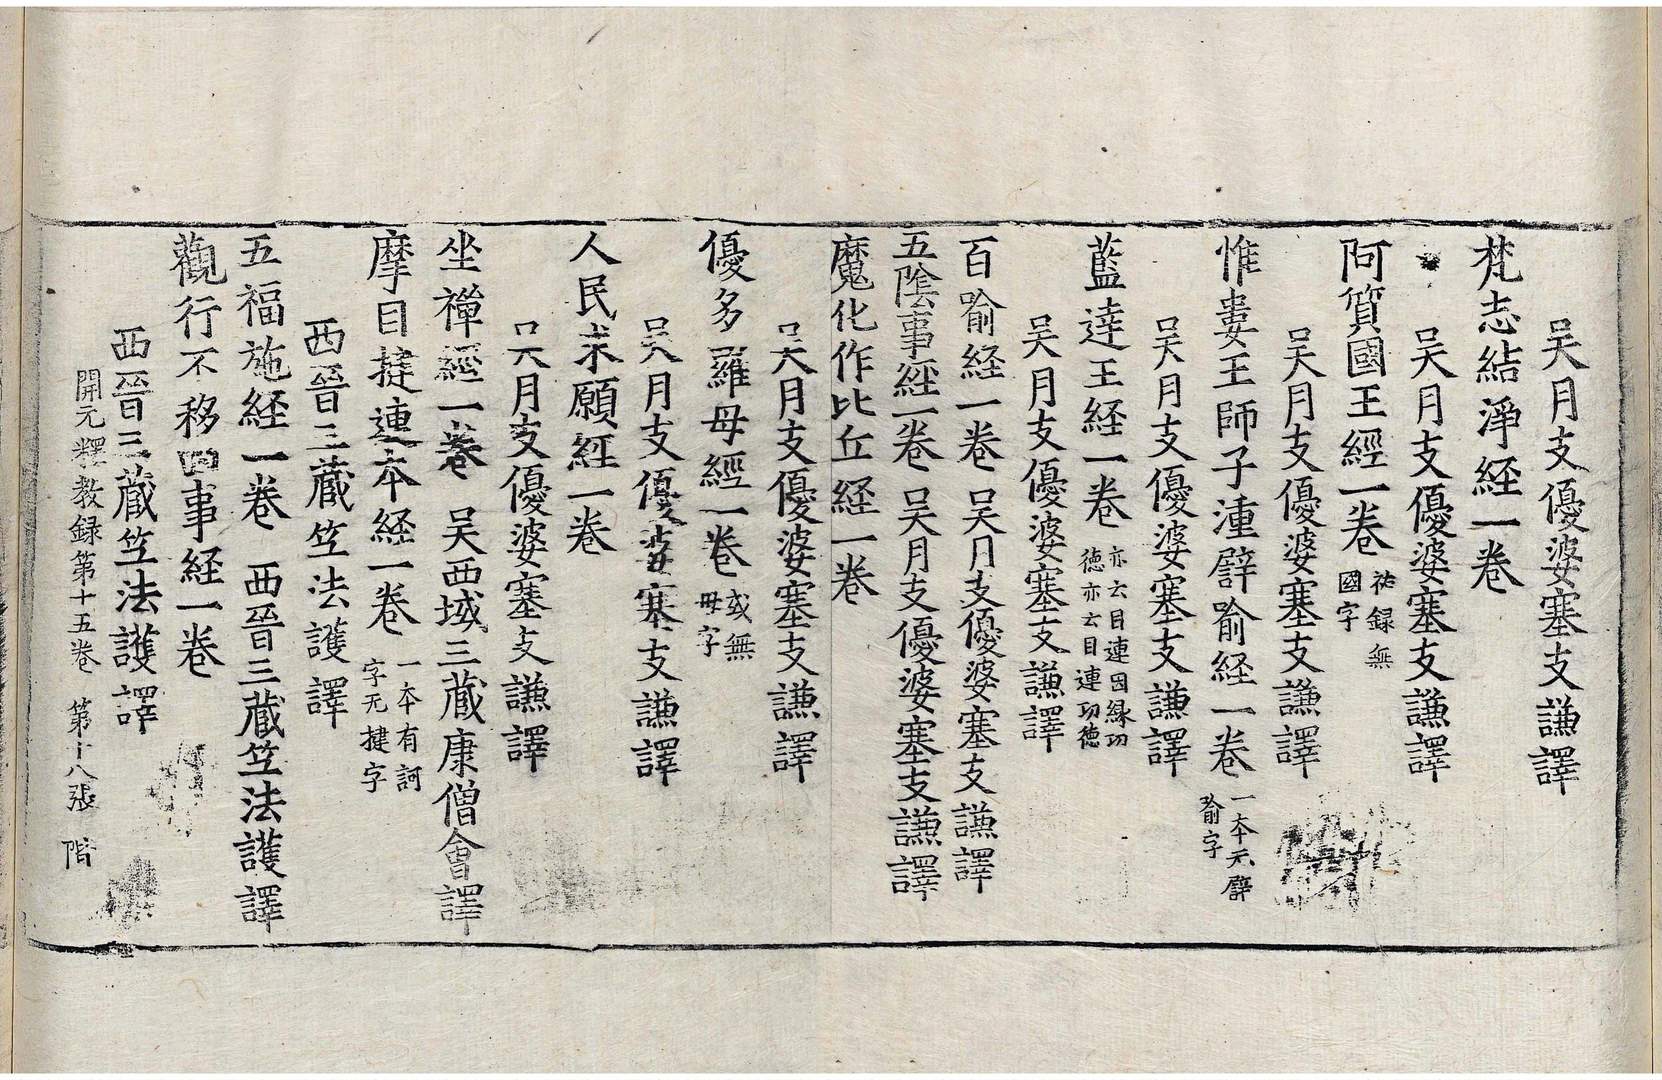 吴月支優婆塞支謙譯
梵志結淨経一卷
吴月支優婆塞支謙譯
阿質國王經一卷 祐録無國字
吴月支優婆塞支謙譯
惟婁王師子湩譬喻経一卷 一本无譬喻字
吴月支優婆塞支謙譯
藍達王経一卷 亦云目連因縁功德亦云目連功德
吴月支優婆塞支謙譯
百喻経一卷 吴月支優婆塞支謙譯
五陰事経一卷 吴月支優婆塞支謙譯
魔化作比丘経一卷
吴月支優婆塞支謙譯
優多羅母經一卷 或無母字
吴月支優婆塞支謙譯
人民求願経一卷
吴月支優婆塞支謙譯
坐禪經一卷 吴西域三藏康僧會譯
摩目揵連本経一卷 一本有訶字无揵字
西晉三藏竺法護譯
五福施経一卷 西晉三藏竺法護譯
觀行不移四事経一卷
西晉三藏竺法護譯
開元釋教録第十五卷 第十八張 階